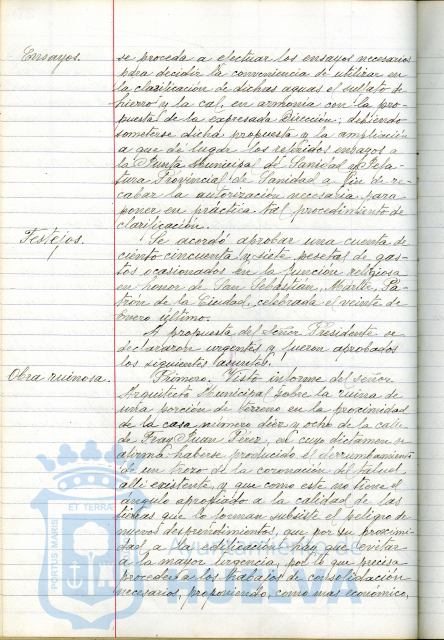 Ensayos.
se proceda a efectuar los ensayos necesarios
para decidir la conveniencia de utilizar en
la clarificación de dichas aguas el sulfato de
hierro y la cal, en armonía con la pro-
puesta de la expresada Dirección; debiendo
someterse dicha propuesta y la ampliación
a que dé lugar los referidos ensayos a
la Junta Municipal de Sanidad y Jefa-
tura Provincial de Sanidad a fin de re-
cabar la autorización necesaria para
poner en práctica tal procedimiento de
clarificación.
Festejos.
Se acordó aprobar una cuenta de
ciento cincuenta y siete pesetas de gas-
tos ocasionados en la función religiosa
en honor de San Sebastián, Mártir, Pa-
trón de la Ciudad, celebrada el veinte de
Enero último.
A propuesta del Señor Presidente se
declararon urgentes y fueron aprobados
los siguientes asuntos:
Obra ruinosa.
Primero. Visto informe del señor
Arquitecto Municipal sobre la ruina de
una porción de terreno en la proximidad
de la casa número diez y ocho de la calle
de Fray Juan Pérez, en cuyo dictamen se
afirma haberse producido el derrumbamiento
de un trozo de la coronación del talud
allí existente, y que como este no tiene el
ángulo apropiado a la calidad de las
tierras que lo forman subsiste el peligro de
nuevos desprendimientos, que por su proximi-
dad a la edificación hay que evitar
a la mayor urgencia, por lo que precisa
proceder a los trabajos de consolidación
necesarios, proponiendo, como mas económico,
ET TERRAE
PORTUS MARIS
HUELVA